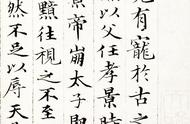 先有寵於古之
以父任孝景時
景帝崩太子即
黯往視之不至
然不足以辱天